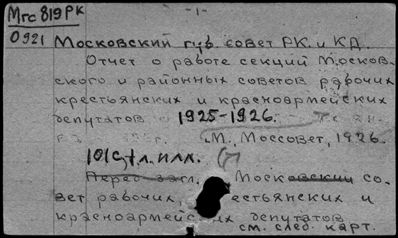 Мгс 819 РК
- 1 -
0921 Московский губ. совет РК. и КД.
Отчет о работе секций Москов-
ского и районных советов рабочих
крестьянских и красноармейских
депутатов 1925-1926.
М., Моссовет, 1926.
101 с., 1 л. илл.
Перес загл. Московский со-
вет рабочих, естьянских и
красноармейских депутатов
см. след. карт.